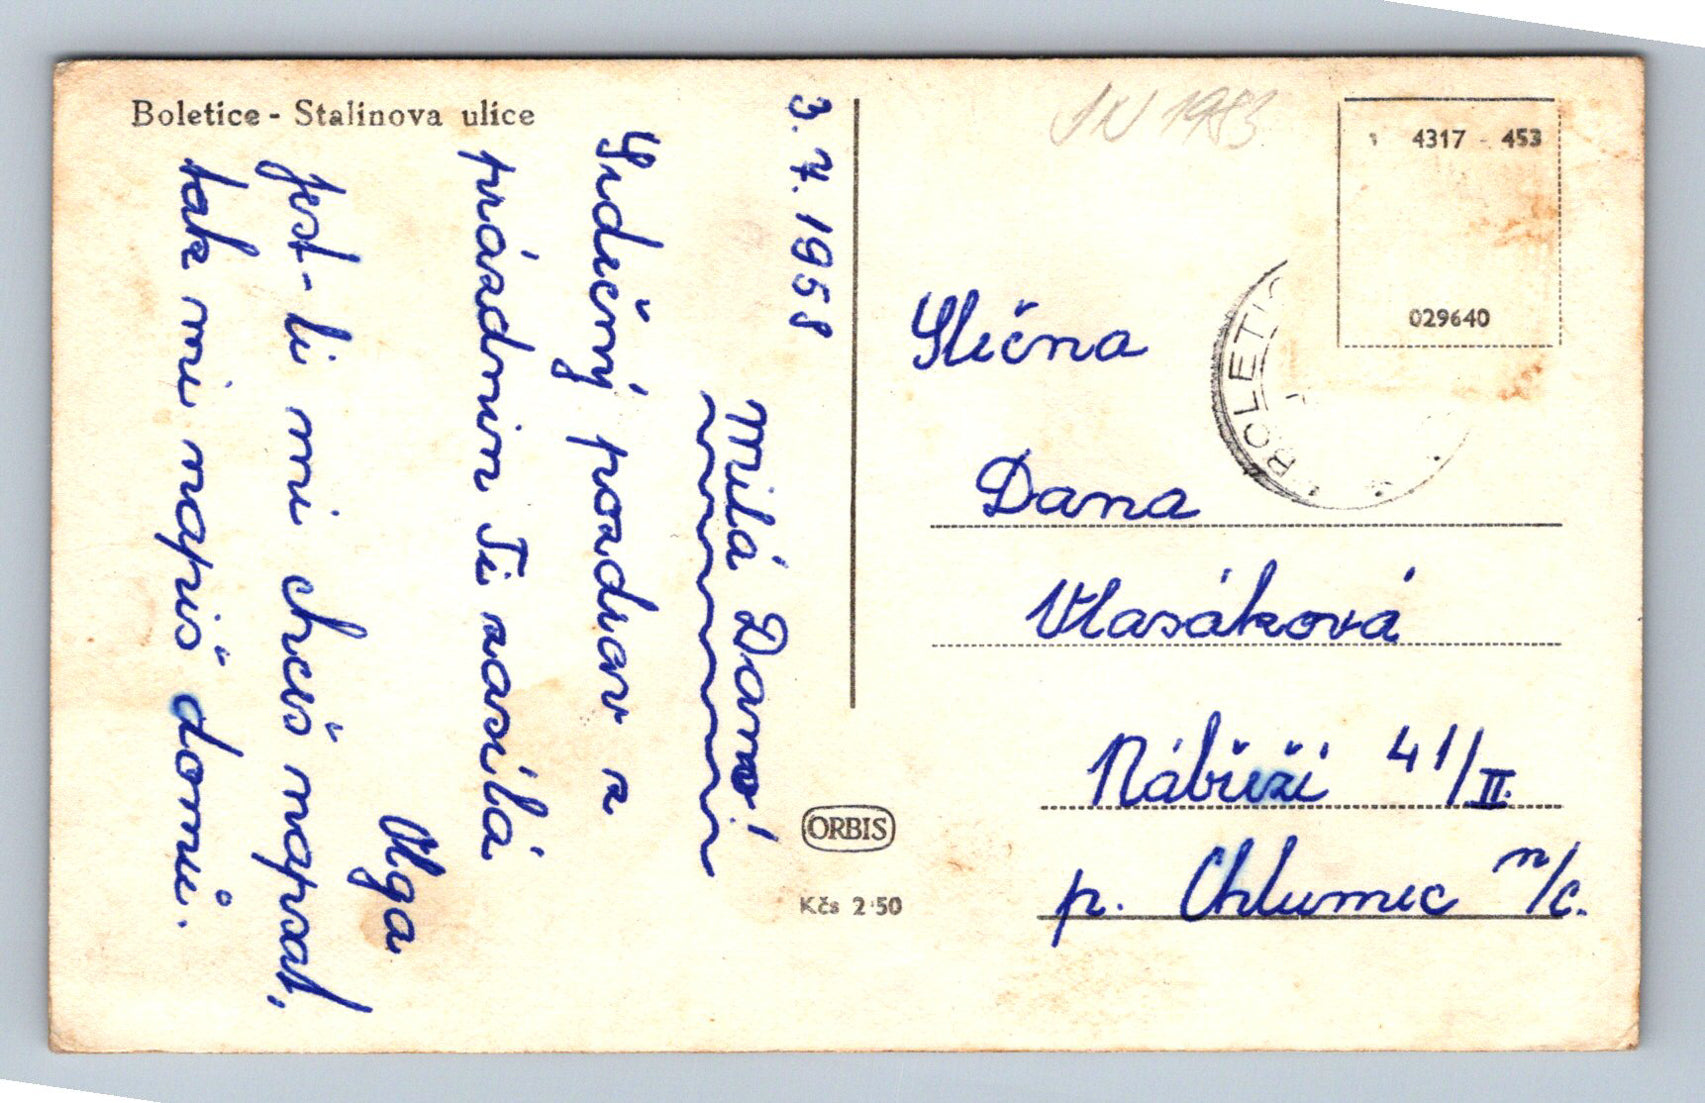 Boletice - Stalinova ulice
3. 7. 1958
Milá Dano!
Srdečný pozdrav z
prázdnin Ti zasílá
Olga
jest-li mi chceš napsat,
tak mi napiš domů.
1983
4317 - 453
029640
BOLETIC
Slečna
Dana
Vlasáková
Nábřeží 41/II.
p. Chlumec n/C.
ORBIS
Kčs 2·50